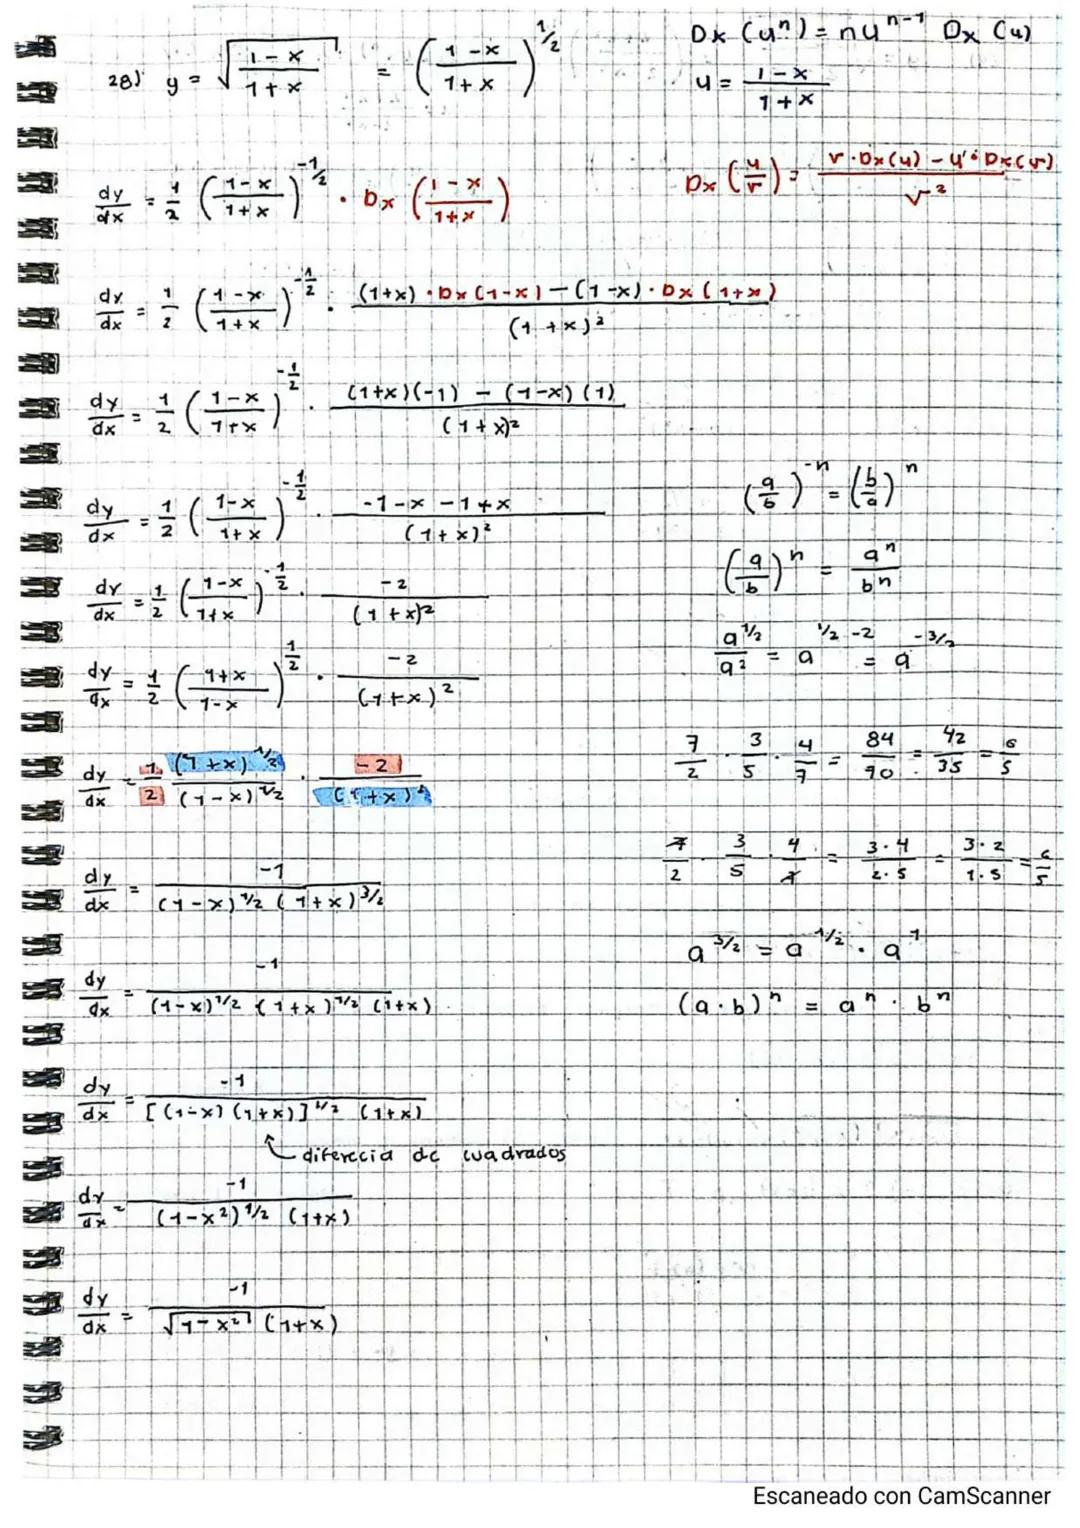 28) y = √((1-x)/(1+x)) = ((1-x)/(1+x))^1/2
Dx (uⁿ) = nu^n-1 Dx (u)
u = (1-x)/(1+x)
dy/dx = 1/2 ((1-x)/(1+x))^-1/2 · Dx ((1-x)/(1+x))
Dx (u/v) = (v·Dx(u) - u·Dx(v))/v²
dy/dx = 1/2 ((1-x)/(1+x))^-1/2 · ((1+x)·Dx(1-x) - (1-x)·Dx(1+x))/(1+x)²
dy/dx = 1/2 ((1-x)/(1+x))^-1/2 · ((1+x)(-1) - (1-x)(1))/(1+x)²
dy/dx = 1/2 ((1-x)/(1+x))^-1/2 · (-1-x-1+x)/(1+x)²
(a/b)^-n = (b/a)^n
dy/dx = 1/2 ((1-x)/(1+x))^-1/2 · -2/(1+x)²
(a/b)^n = a^n/b^n
dy/dx = 1/2 ((1+x)/(1-x))^1/2 · -2/(1+x)²
a^1/2/a² = a^1/2-2 = a^-3/2
dy/dx = 1/2 (1+x)^1/2/(1-x)^1/2 · -2/(1+x)²
7/2 · 3/5 · 4/7 = 84/70 = 42/35 = 6/5
dy/dx = -1/((1-x)^1/2 (1+x)^3/2)
7/2 · 3/5 · 4/7 = 3·4/2·5 = 3·2/1·5 = 6/5
a^3/2 = a^1/2 · a^1
dy/dx = -1/((1-x)^1/2 (1+x)^1/2 (1+x))
(a·b)^n = a^n · b^n
dy/dx = -1/([(1-x)(1+x)]^1/2 (1+x))
diferecia de cuadrados
dy/dx = -1/((1-x²)^1/2 (1+x))
dy/dx = -1/(√(1-x²) (1+x))
Escaneado con CamScanner